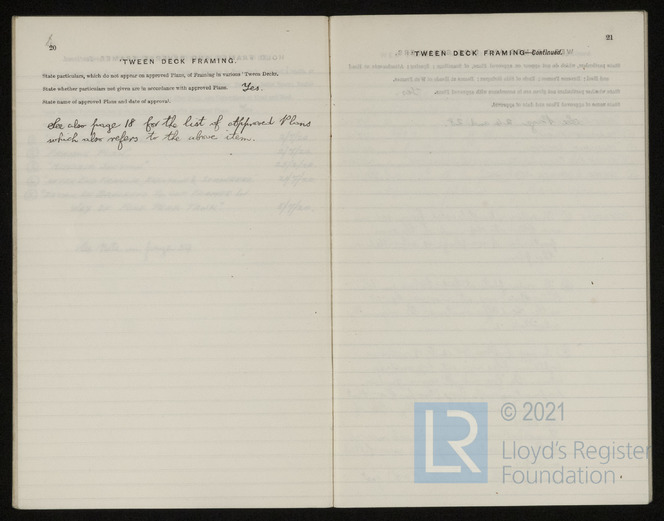 20
'TWEEN DECK FRAMING.
State particulars, which do not appear on approved Plans, of Framing in various 'Tween Decks.
State whether particulars not given are in accordance with approved Plans. Yes.
State name of approved Plans and date of approval.
See also page 18 for the list of approved Plans
which also refers to the above item.
21
'TWEEN DECK FRAMING—Continued.
LR
© 2021
Lloyd's Register
Foundation